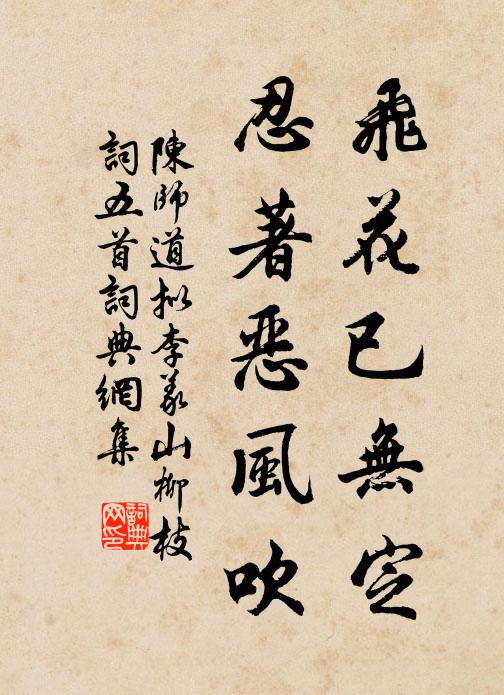 飛花已無定
忍著惡風吹
陳師道拟李義山柳枝
詞五首詞典網集
詞典
网印